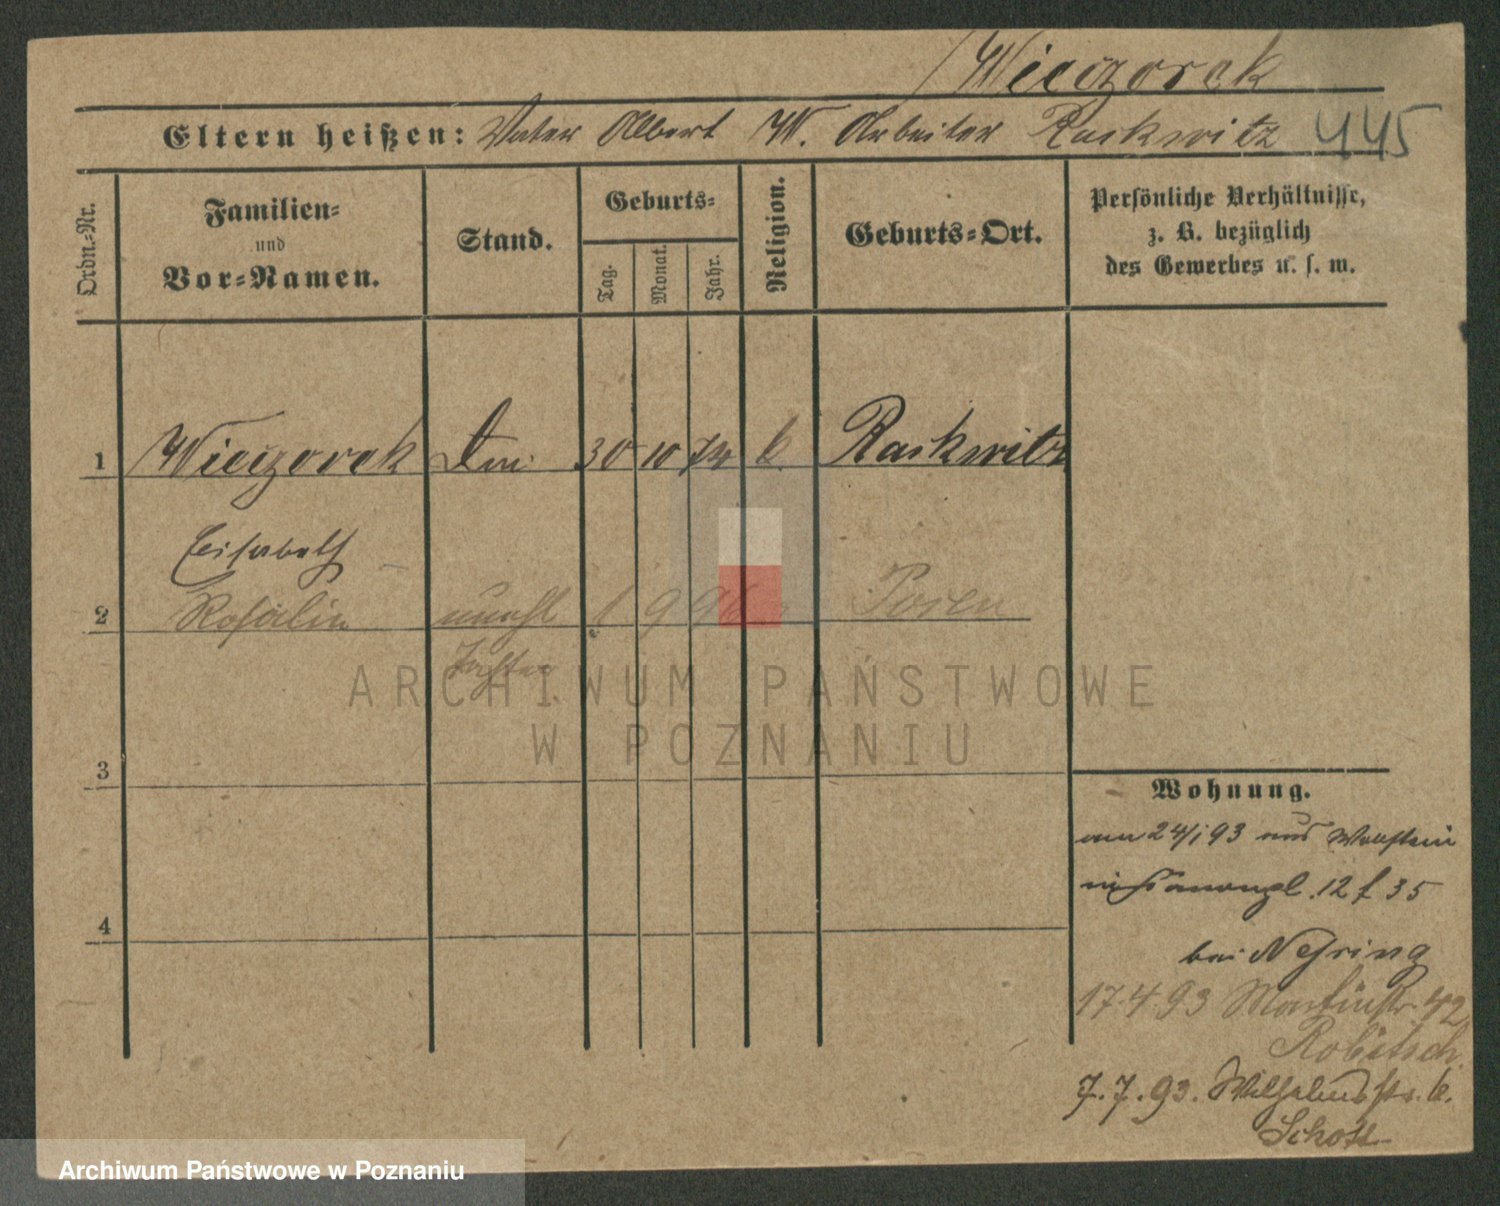 Wieczorek
Eltern heißen: Vater Albert W. Arbeiter Rackwitz 445
Ordn.-Nr.
Familien-
und
Vor-Namen.
Stand.
Geburts-
Tag.
Monat.
Jahr.
Religion.
Geburts-Ort.
Persönliche Verhältnisse,
z. B. bezüglich
des Gewerbes u. s. w.
1 Wieczorek 30 10 74 k. Rackwitz
Elisabeth
2 Rosalie unehl 1 9 96 Posen
Tochter
3
4
Wohnung.
am 24/1 93 aus Wollstein
12 f 35
bei Nehring
17.4.93 Martinstr. 42
7.7.93. Wilhelmsstr. 6.
Schott
ARCHIWUM PAŃSTWOWE
W POZNANIU
Archiwum Państwowe w Poznaniu